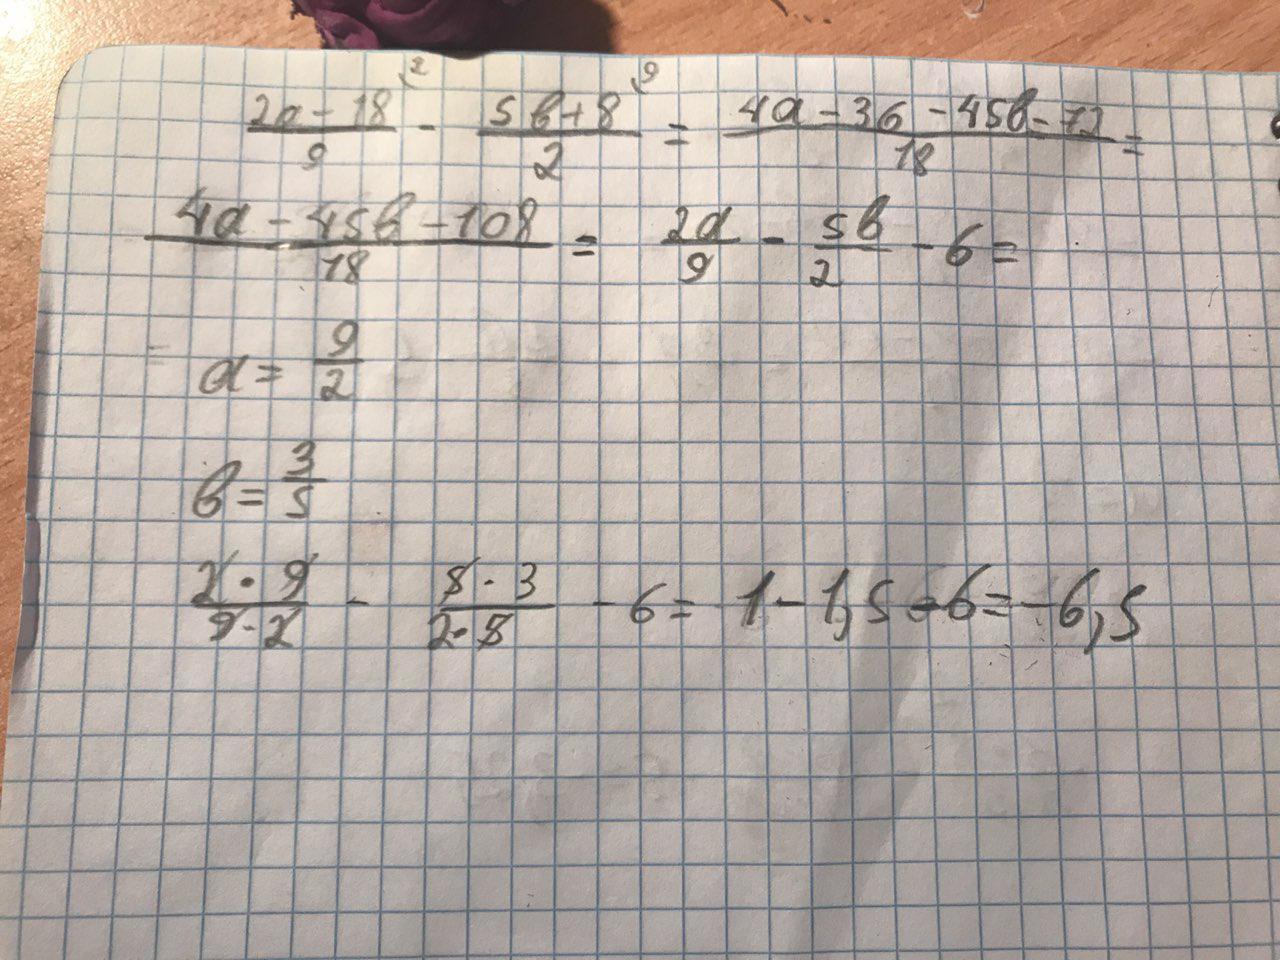 (2a - 18)/9 ^2 - (5b + 8)/2 ^9 = (4a - 36 - 45b - 72)/18 =
(4a - 45b - 108)/18 = 2a/9 - 5b/2 - 6 =
a = 9/2
b = 3/5
(2 · 9)/(9 · 2) - (5 · 3)/(2 · 5) - 6 = 1 - 1,5 - 6 = -6,5